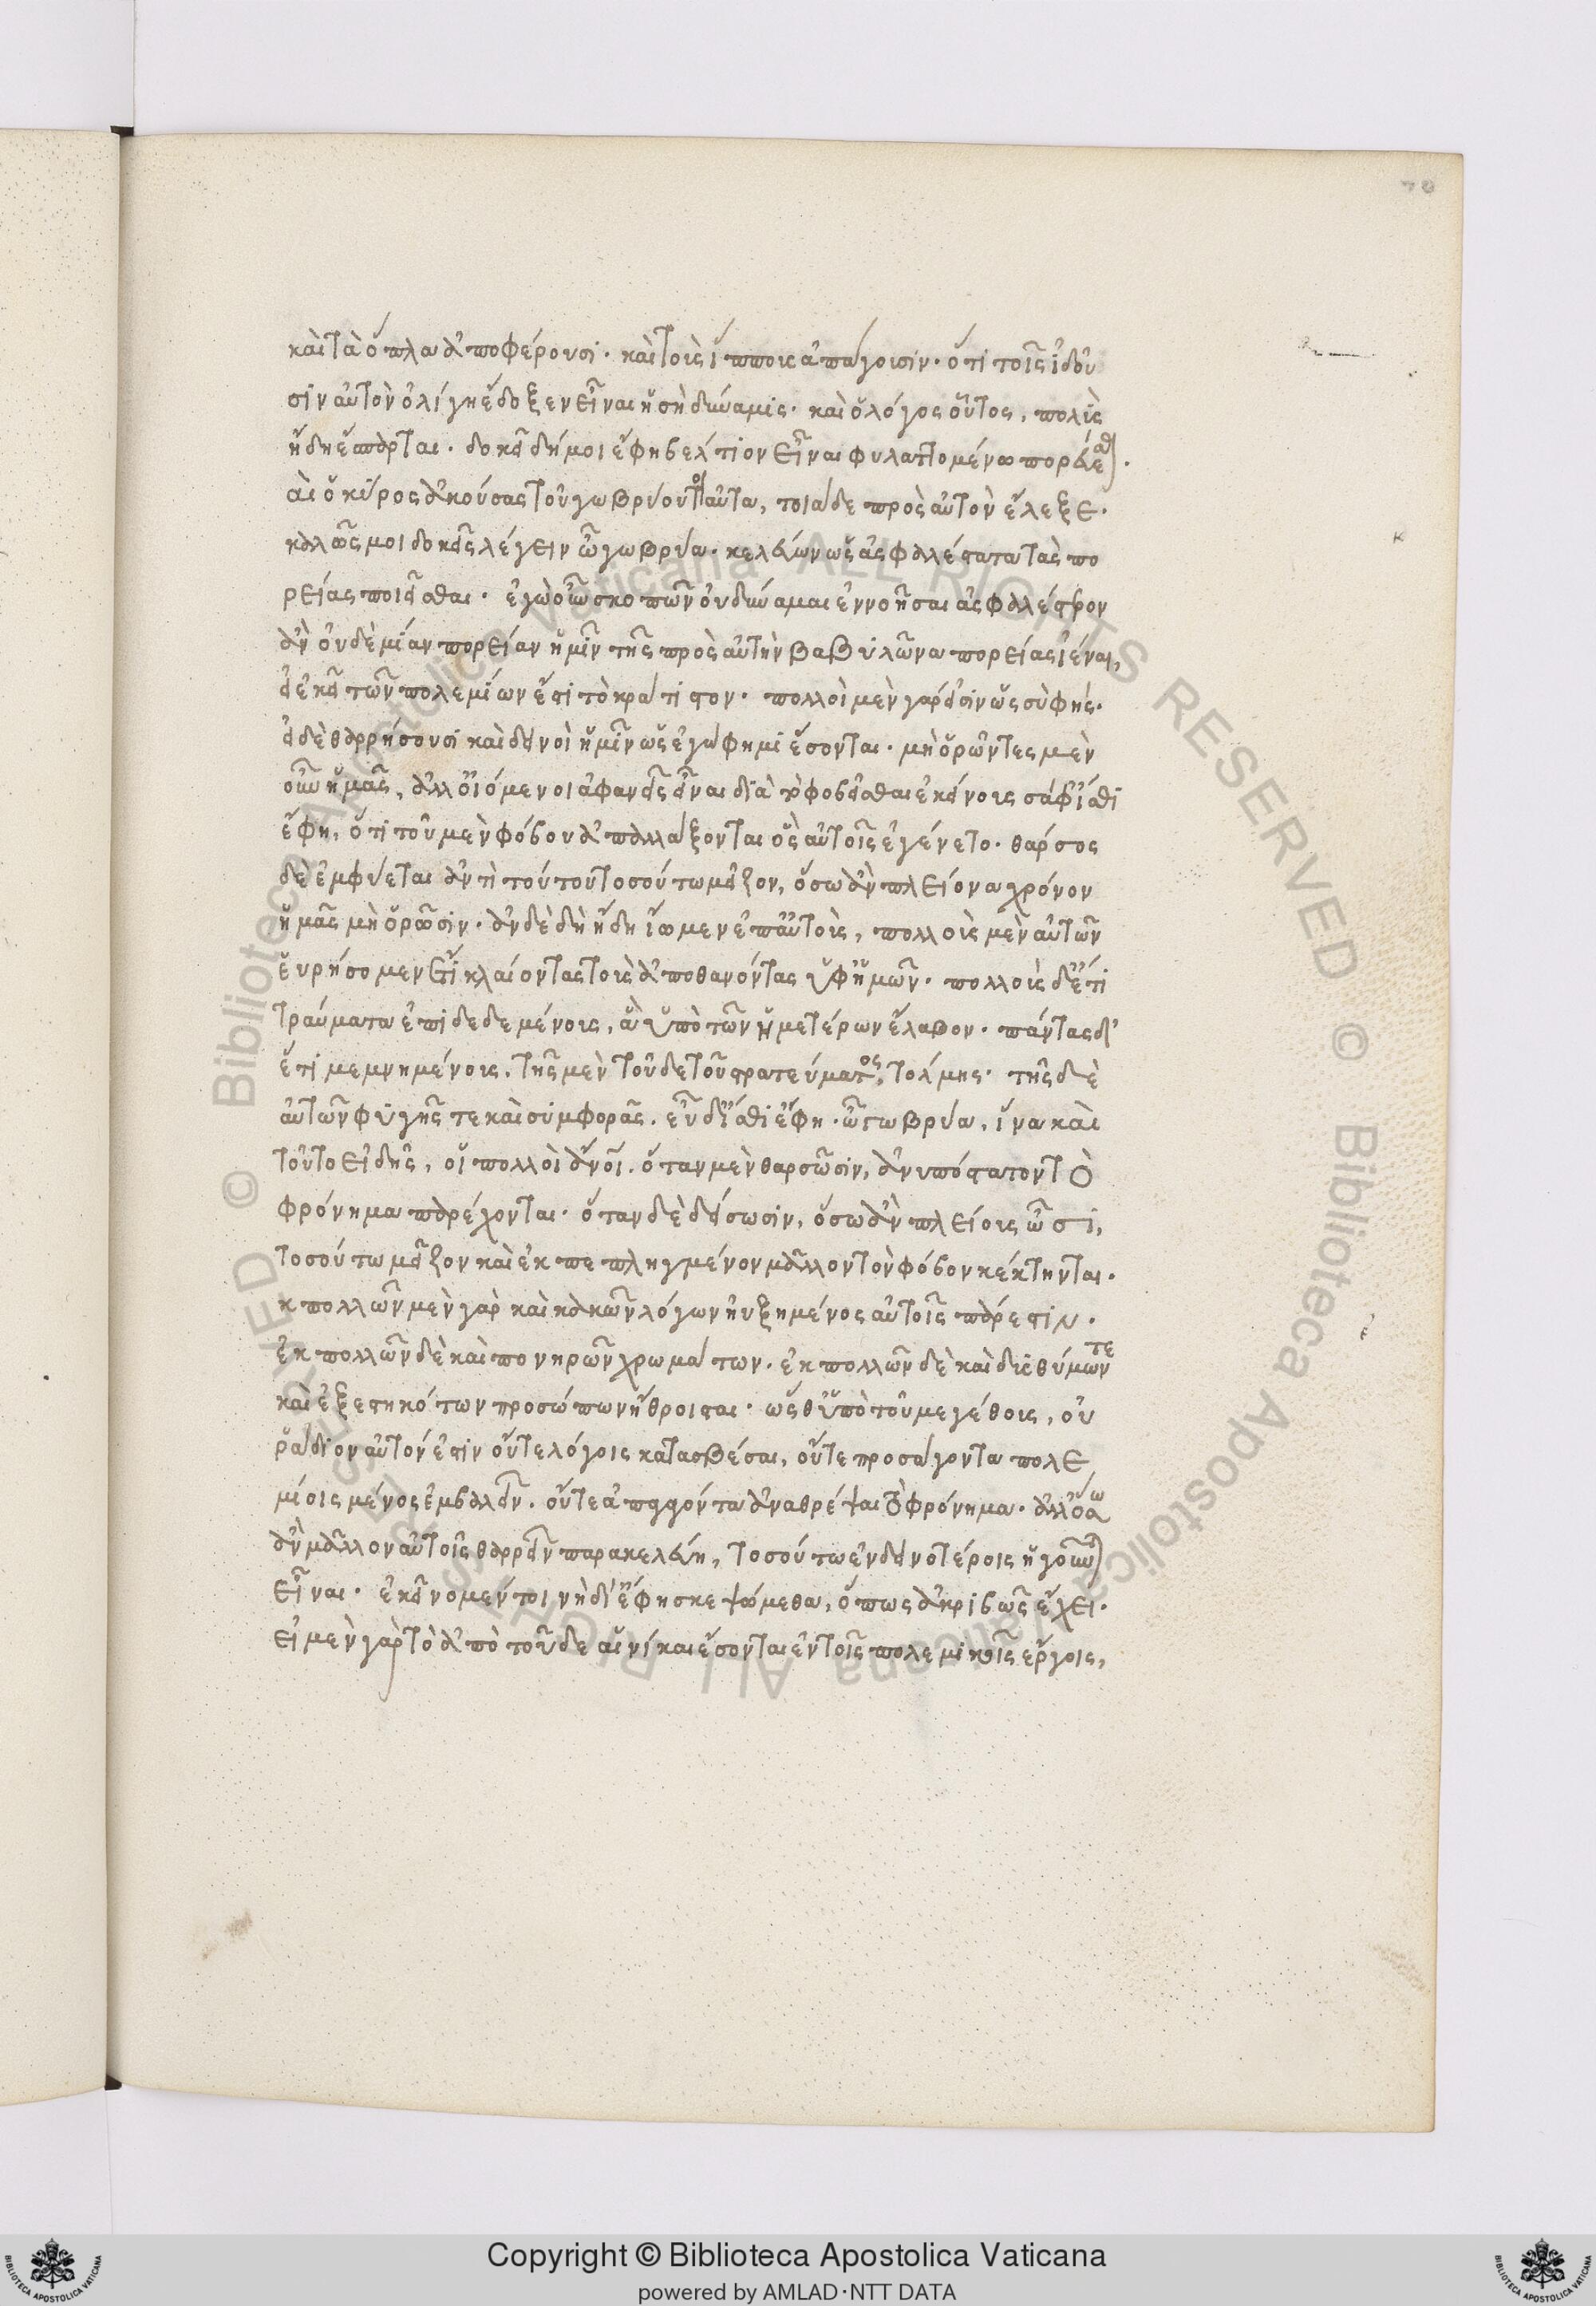 καὶ τὰ ὅπλα ἀποφέρουσι· καὶ τοὺς ἵππους ἀπάγουσιν· ὅτι τοῖς ἰδοῦ
σιν αὐτὸν ὀλίγη ἔδοξεν εἶναι ἡ σὴ δύναμις· καὶ ὁ λόγος οὗτος, πολὺς
ἤδη ἔσπαρται· δοκεῖ δή μοι ἔφη βέλτιον εἶναι φυλαττομένω πορεύεσθαι·
αὶ ὁ κῦρος ἀκούσας τοῦ γωβρύου τοιαῦτα, τοιάδε πρὸς αὐτὸν ἔλεξε·
καλῶς μοι δοκεῖς λέγειν ὦ γωβρύα· κελεύων ὡς ἀσφαλέστατα τὰς πο
ρείας ποιεῖσθαι· ἐγὼ οὖν σκοπῶν οὐ δύναμαι ἐννοῆσαι ἀσφαλέστερον
ἂν οὐδὲ μίαν πορείαν ἡμῖν τῆς πρὸς αὐτὴν βαβυλῶνα πορείας ἰέναι,
εἰ ἐκεῖ τῶν πολεμίων ἐστὶ τὸ κράτιστον· πολλοὶ μὲν γάρ εἰσιν ὡς σὺ φῄς·
εἰ δὲ θαρρήσουσι καὶ δεινοὶ ἡμῖν ὡς ἐγώ φημι ἔσονται· μὴ ὁρῶντες μὲν
οὖν ἡμᾶς, ἀλλ' οἰόμενοι ἀφανεῖς εἶναι διὰ τὸ φοβεῖσθαι ἐκείνους σάφ' ἴσθι
ἔφη, ὅτι τοῦ μὲν φόβου ἀπαλλάξονται ὃς αὐτοῖς ἐγένετο· θάρσος
δὲ ἐμφύεται ἀντὶ τούτου τοσούτω μεῖζον, ὅσω ἂν πλείονα χρόνον
ἡμᾶς μὴ ὁρῶσιν· ἂν δὲ δὴ ἤδη ἴωμεν ἐπ' αὐτοὺς, πολλοὺς μὲν αὐτῶν
εὑρήσομεν ἔτι κλαίοντας τοὺς ἀποθανόντας ὑφ' ἡμῶν· πολλοὺς δ' ἔτι
τραύματα ἐπιδεδεμένους, ἃ ὑπὸ τῶν ἡμετέρων ἔλαβον· πάντας δ'
ἔτι μεμνημένους, τῆς μὲν τοῦδε τοῦ στρατεύματος, τόλμης· τῆς δὲ
αὐτῶν φυγῆς τε καὶ συμφορᾶς. εὖ δ' ἴσθι ἔφη· ὦ γωβρύα, ἵνα καὶ
τοῦτο εἰδῇς, οἱ πολλοὶ ἄνοι. ὅταν μὲν θαρσῶσιν, ἀνυπόστατον τὸ
φρόνημα παρέχονται· ὅταν δὲ δείσωσιν, ὅσω ἂν πλείους ὦσι,
τοσούτω μεῖζον καὶ ἐκπεπληγμένον μᾶλλον τὸν φόβον κέκτηνται·
κ πολλῶν μὲν γὰρ καὶ κακῶν λόγων ηὐξημένος αὐτοῖς πάρεστιν·
ἐκ πολλῶν δὲ καὶ πονηρῶν χρωμάτων· ἐκ πολλῶν δὲ καὶ δυσθύμων τε
καὶ ἐξεστηκότων προσώπων ἤθροισται· ὥσθ' ὑπὸ τοῦ μεγέθους, οὐ
ῥάδιον αὐτόν ἐστιν οὔτε λόγοις κατασβέσαι, οὔτε προσάγοντα πολε
μίοις μένος ἐμβαλεῖν. οὔτε ἀπάγοντα ἀναθρέψαι τὸ φρόνημα· ἀλλ' ὅσω
ἂν μᾶλλον αὐτοῖς θαρρεῖν παρακελεύῃ, τοσούτω ἐν δεινοτέροις ἡγοῦνται
εἶναι· ἐκεῖνο μέντοι νὴ δί' ἔφη σκεψώμεθα, ὅπως ἀκριβῶς ἔχει·
εἰ μὲν γὰρ τὸ ἀπὸ τοῦδε αἱ νίκαι ἔσονται ἐν τοῖς πολεμικοῖς ἔργοις,
κ
ἐ
Copyright © Biblioteca Apostolica Vaticana
powered by AMLAD·NTT DATA